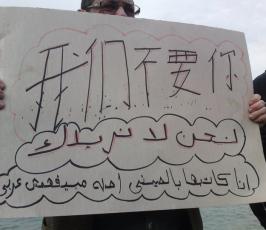 我们不要你
نحن لا نريداك
انا كاتبها بالصيني اصله ميفهمش عربي